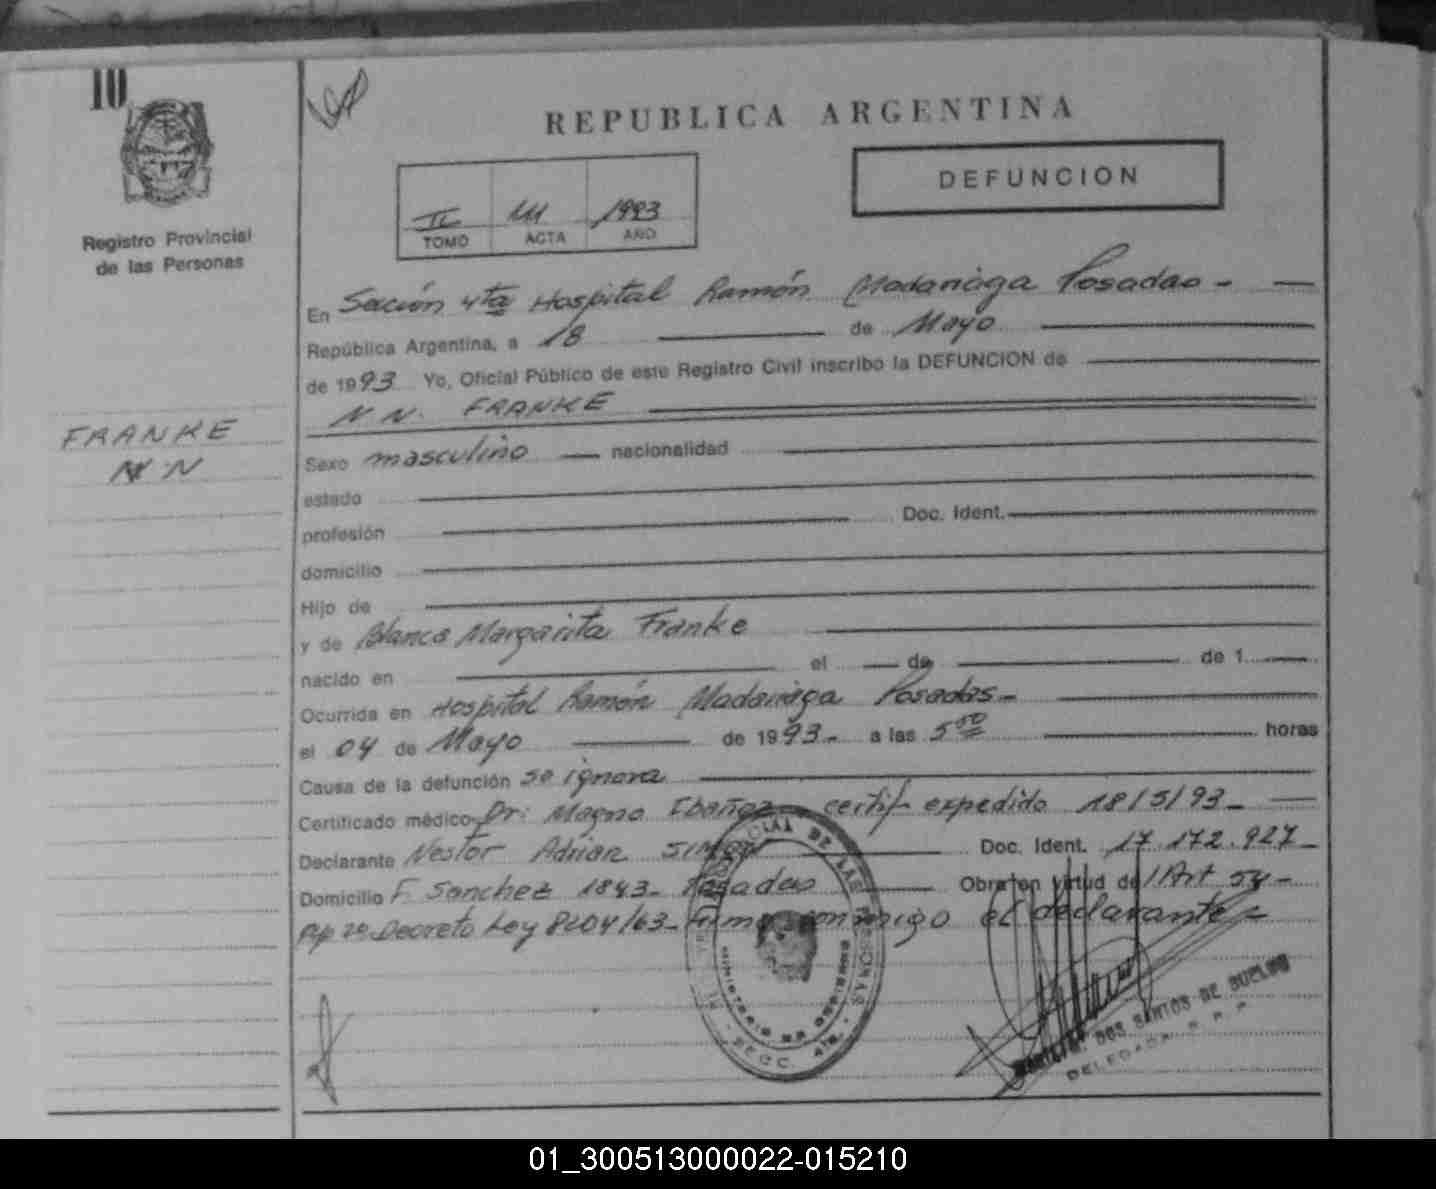 10
REPUBLICA ARGENTINA
DEFUNCION
II 111 1993
TOMO ACTA AÑO
Registro Provincial
de las Personas
En Sección 4ta Hospital Ramón Madariaga Posadas -
República Argentina, a 18 de Mayo
de 1993 Yo, Oficial Público de este Registro Civil inscribo la DEFUNCION de
N.N. FRANKE
FRANKE
N.N
Sexo masculino nacionalidad
estado
profesión Doc. Ident.
domicilio
Hijo de
y de Blanca Margarita Franke
nacido en el de de 1
Ocurrida en Hospital Ramón Madariaga Posadas -
el 04 de Mayo de 1993 - a las 5 00 horas
Causa de la defunción se ignora
Certificado médico Dr: Magno Ibañez certif. expedido 18/5/93 -
Declarante Nestor Adrian Simon Doc. Ident. 17.172.927 -
Domicilio F. Sanchez 1843 - Posadas Obra en virtud de l Art 54 -
Decreto Ley 8204/63 - Firma conmigo el declarante -
DE LAS PERSONAS
MINISTERIO DE GOBIERNO
SECC. 4ta.
DOS SANTOS DE
DELEGADA R.P.P
01_300513000022-015210